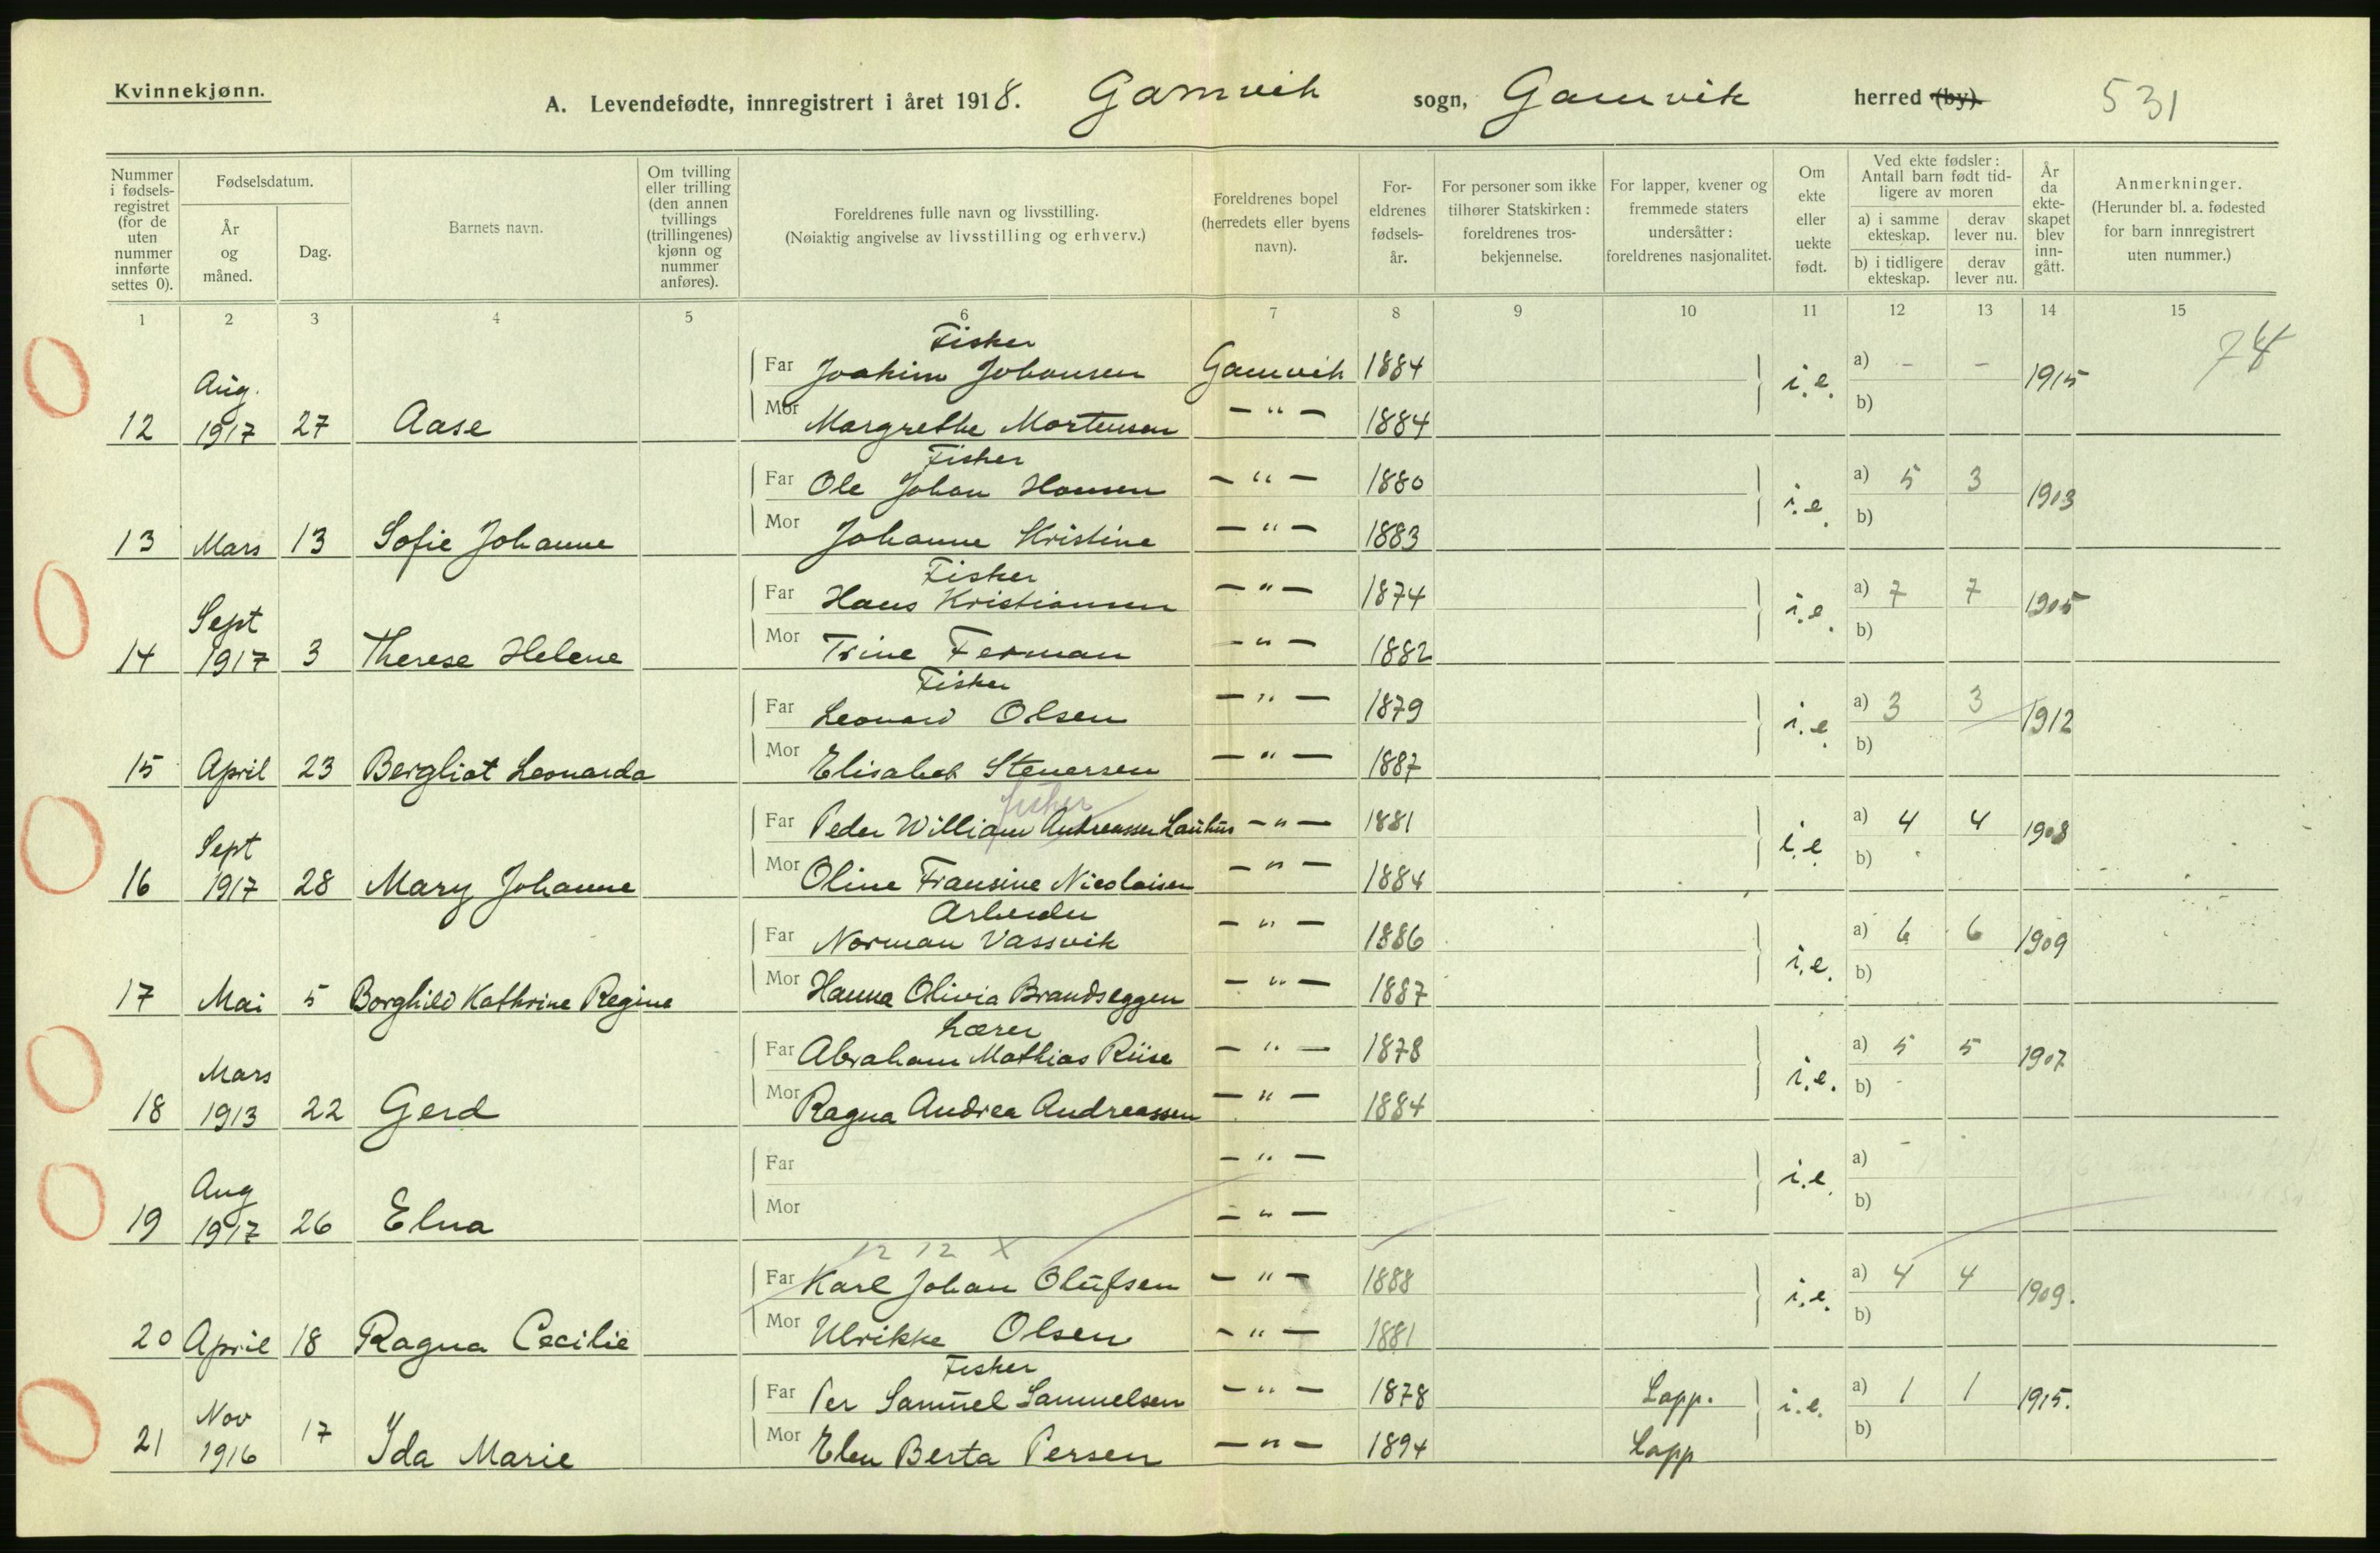 Kvinnekjønn.
A. Levendefødte, innregistrert i året 1918. Gamvik sogn, Gamvik herred (by). 531
Nummer i fødsels-registret (for de uten nummer innførte settes 0).
Fødselsdatum.
År og måned.
Dag.
Barnets navn.
Om tvilling eller trilling (den annen tvillings (trillingenes) kjønn og nummer anføres).
Foreldrenes fulle navn og livsstilling.
(Nøiaktig angivelse av livsstilling og erhverv.)
Foreldrenes bopel (herredets eller byens navn).
For-eldrenes fødsels-år.
For personer som ikke tilhører Statskirken: foreldrenes tros-bekjennelse.
For lapper, kvener og fremmede staters undersåtter: foreldrenes nasjonalitet.
Om ekte eller uekte født.
Ved ekte fødsler: Antall barn født tid-ligere av moren
a) i samme ekteskap. derav lever nu.
b) i tidligere ekteskap. derav lever nu.
År da ekte-skapet blev inn-gått.
Anmerkninger.
(Herunder bl. a. fødested for barn innregistrert uten nummer.)
1 2 3 4 5 6 7 8 9 10 11 12 13 14 15
Fisker
Far Joakim Johansen Gamvik 1884 i.e. a) - - 1915 74
12 Aug. 1917 27 Aase Mor Margrethe Mortensen - " - 1884 b)
Fisker
Far Ole Johan Hansen - " - 1880 i.e. a) 5 3 1903
13 Mars 13 Sofie Johanne Mor Johanne Kristine - " - 1883 b)
Fisker
Far Hans Kristiansen - " - 1874 i.e. a) 7 7 1905
14 Sept 1917 3 Therese Helene Mor Trine Ferman - " - 1882 b)
Fisker
Far Leonard Olsen - " - 1879 i.e. a) 3 3 1912
15 April 23 Bergliot Leonarda Mor Elisabet Stenersen - " - 1887 b)
fisker
Far Peder William Andreassen Lauhus - " - 1881 i.e. a) 4 4 1908
16 Sept 1917 28 Mary Johanne Mor Oline Fransine Nicolaisen - " - 1884 b)
Arbeider
Far Norman Vassvik - " - 1886 i.e. a) 6 6 1909
17 Mai 5 Borghild Kathrine Regine Mor Hanna Olivia Brandseggen - " - 1887 b)
Lærer
Far Abraham Mathias Riise - " - 1878 i.e. a) 5 5 1907
18 Mars 1913 22 Gerd Mor Ragna Andrea Andreassen - " - 1884 b)
Far - " - i.e. a) -
19 Aug 1917 26 Elna Mor - " - b)
12 12 X
Far Karl Johan Olufsen - " - 1888 i.e. a) 4 4 1909.
20 April 18 Ragna Cecilie Mor Ulrikke Olsen - " - 1881 b)
Fisker
Far Per Samuel Samuelsen - " - 1878 Lapp. i.e. a) 1 1 1915.
21 Nov 1916 17 Ida Marie Mor Elen Berta Persen - " - 1894 Lapp b)